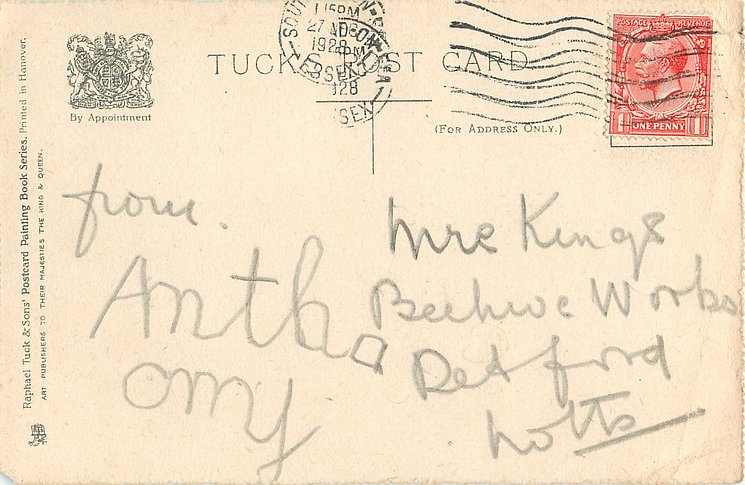 TUCK'S POST CARD
By Appointment
(FOR ADDRESS ONLY.)
POSTAGE REVENUE
1 ONE PENNY 1
1928
ESSEX
Raphael Tuck & Sons' Postcard Painting Book Series. Printed in Hanover.
ART PUBLISHERS TO THEIR MAJESTIES THE KING & QUEEN.
from.
Antho
ony
Mrs Kings
Beehive Works
Retford
Notts